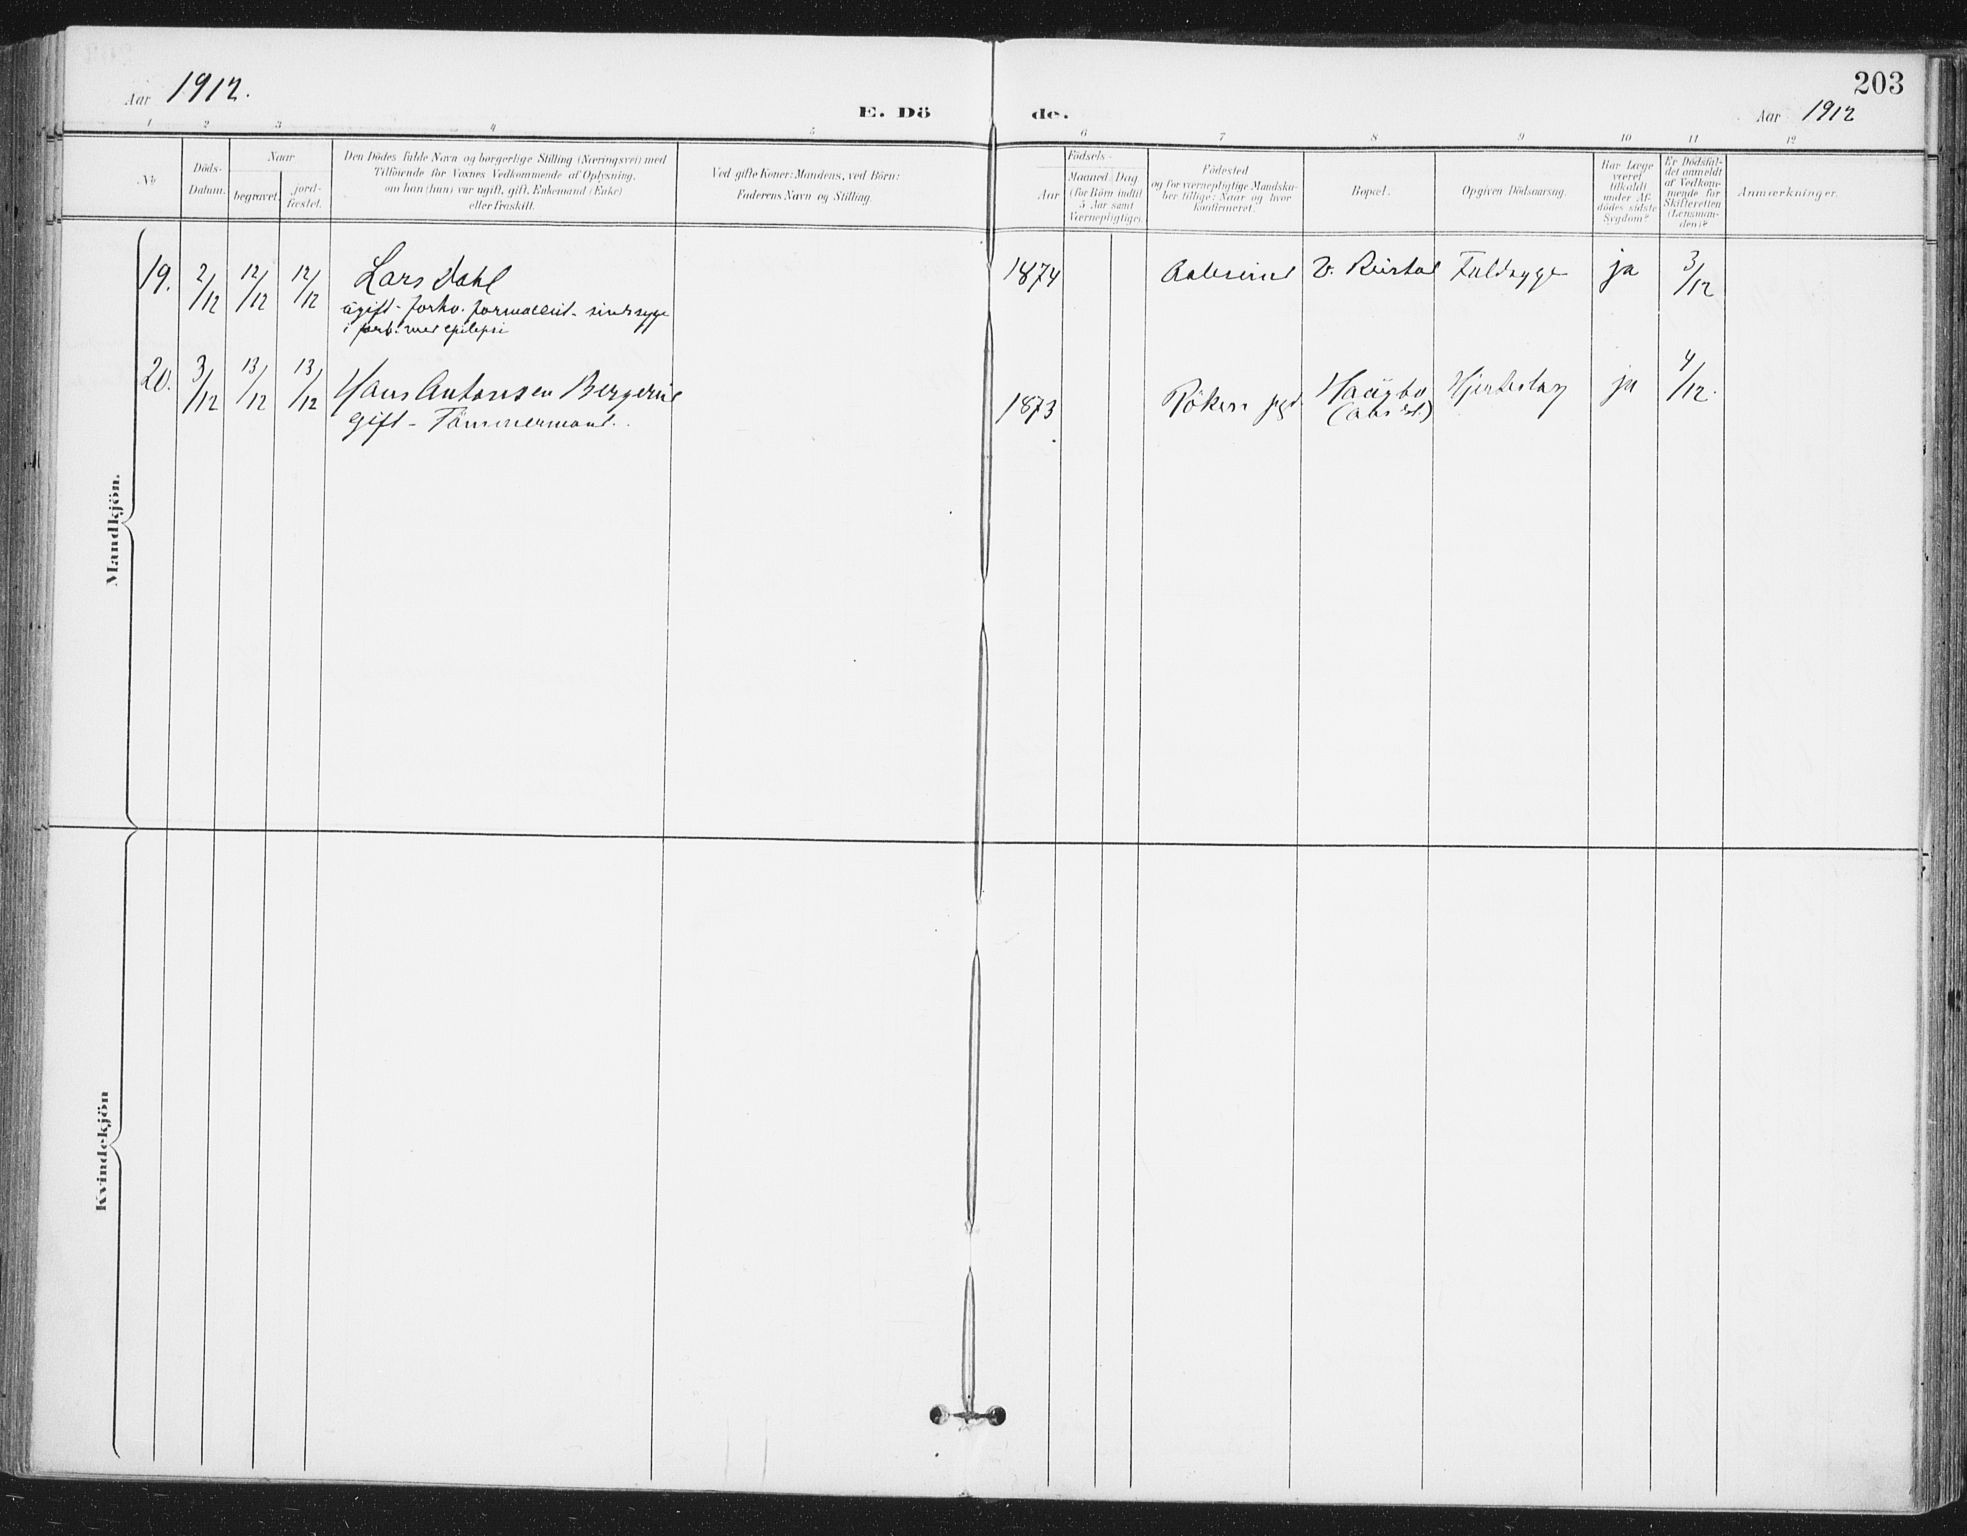 203
Aar 1912.
E. Döde.
Aar 1912
1 2 3 4 5 6 7 8 9 10 11 12
No
Döds-
Datum.
Naar
begravet.
jord-
fæstet.
Den Dödes fulde Navn og borgerlige Stilling (Næringsvei) med
Tilföiende for Voxnes Vedkommende af Oplysning,
om han (hun) var ugift, gift, Enkemand (Enke)
eller fraskilt.
Ved gifte Koner: Mandens, ved Börn:
Faderens Navn og Stilling.
Födsels-
Aar
Maaned Dag
(for Börn indtil
5 Aar samt
Værnepligtige).
Födested
og for værnepligtige Mandska-
ber tillige: Naar og hvor
konfirmeret.
Bopæl.
Opgiven Dödsaarsag.
Har Læge
været
tilkaldt
under Af-
dødes sidste
Sygdom?
Er Dödsfal-
det anmeldt
af Vedkom-
mende for
Skifteretten
(Lensman-
den)?
Anmærkninger.
Mandkjön.
19. 2/12 12/12 12/12 Lars Dahl 1874 V. Reistad Faldsyge ja 3/12
ugift - forho. sindssyge
i forb. med epilepsi
20. 3/12 13/12 13/12 Hans Antonsen 1873 Röken Hjerteslag ja 4/12.
gift - Tömmermand.
Kvindekjön